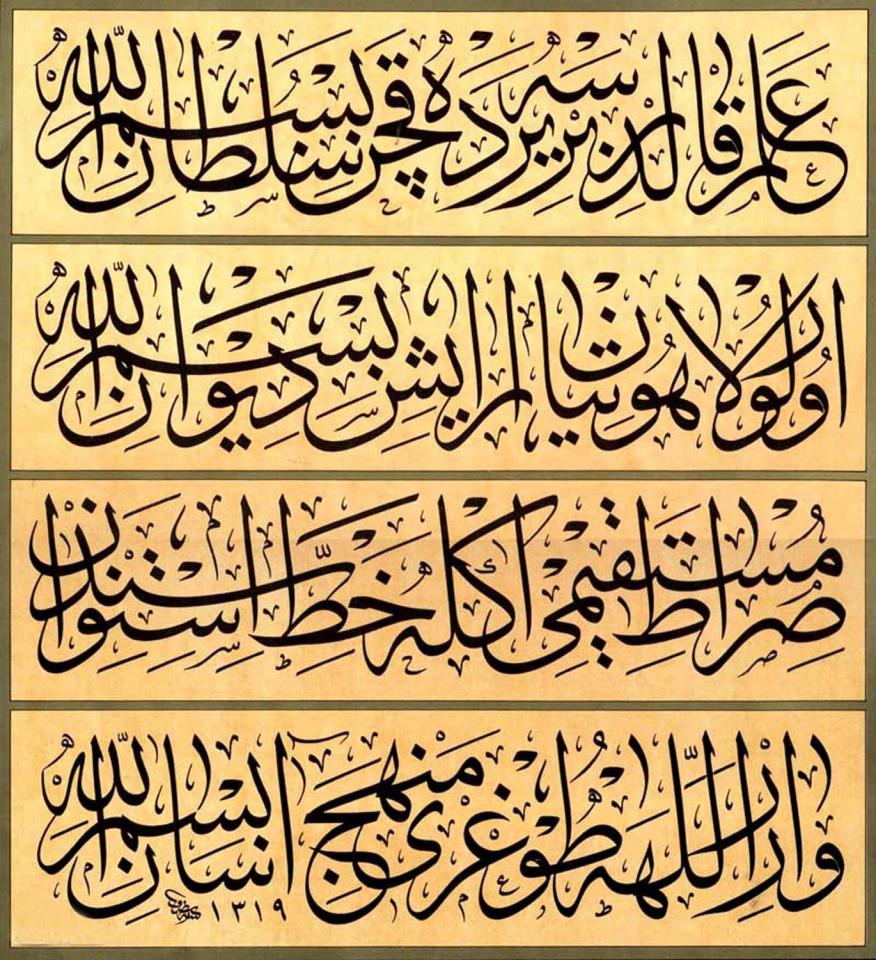 علم قالدرسه بر یرده قچن سلطان بسم الله
اولور لاهوتیان ارایش دیوان بسم الله
صراط مستقیمی اکله خط استواسندن
وارر اللهه طوغری منهج آسان بسم الله
١٣١٩